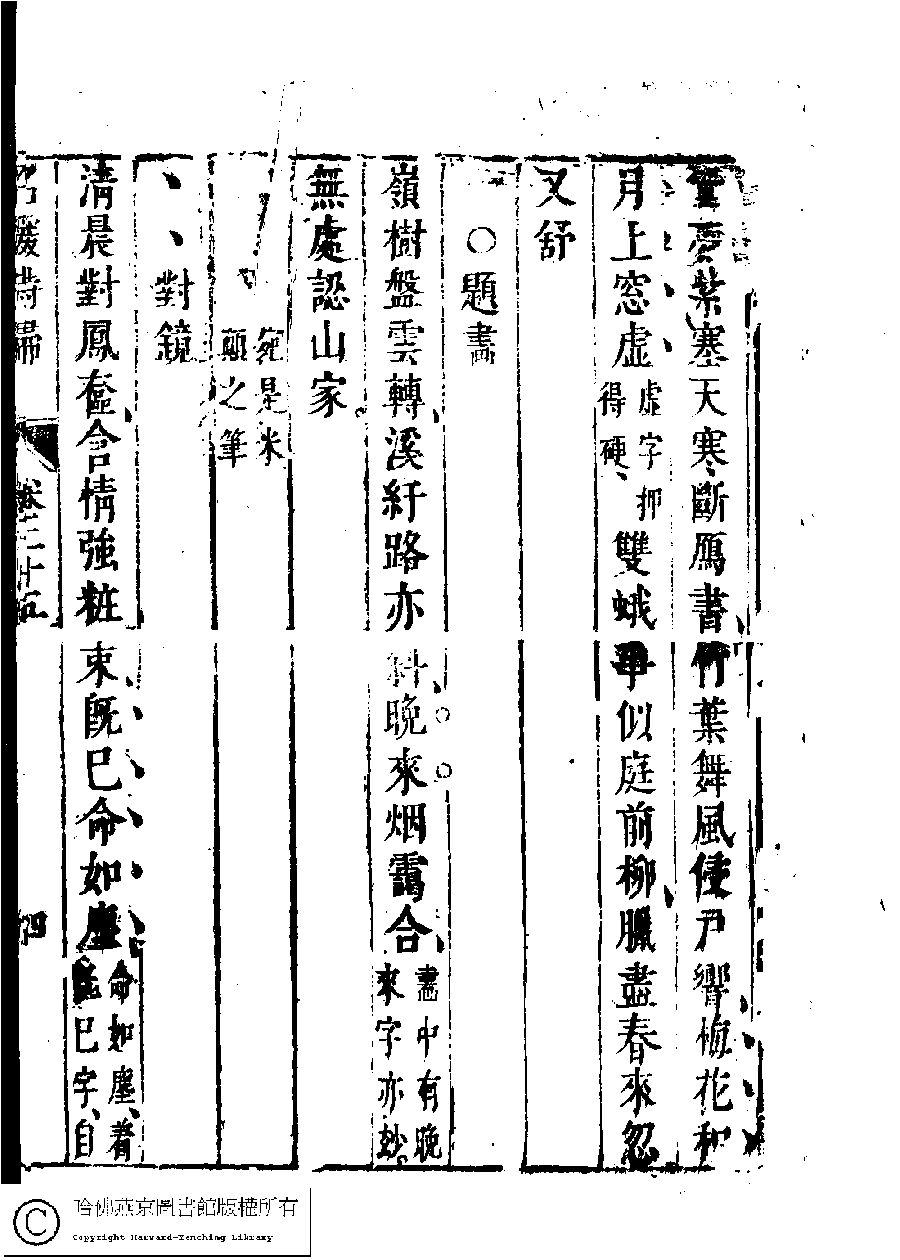 夢紫塞天寒斷鴈書竹葉舞風侵戶響梅花和
月上窓虛虛字押得硬雙蛾爭似庭前柳臘盡春來忽
又舒
○題畫
嶺樹盤雲轉溪紆路亦斜晚來烟靄合畫中有晚來字亦妙
無處認山家
宛是米顛之筆
對鏡
清晨對鳳奩含情強粧束旣已命如塵命如塵着旣已字自
名媛詩歸
卷二十五
四
哈佛燕京圖書館版權所有
Copyright Harvard-Yenching Library